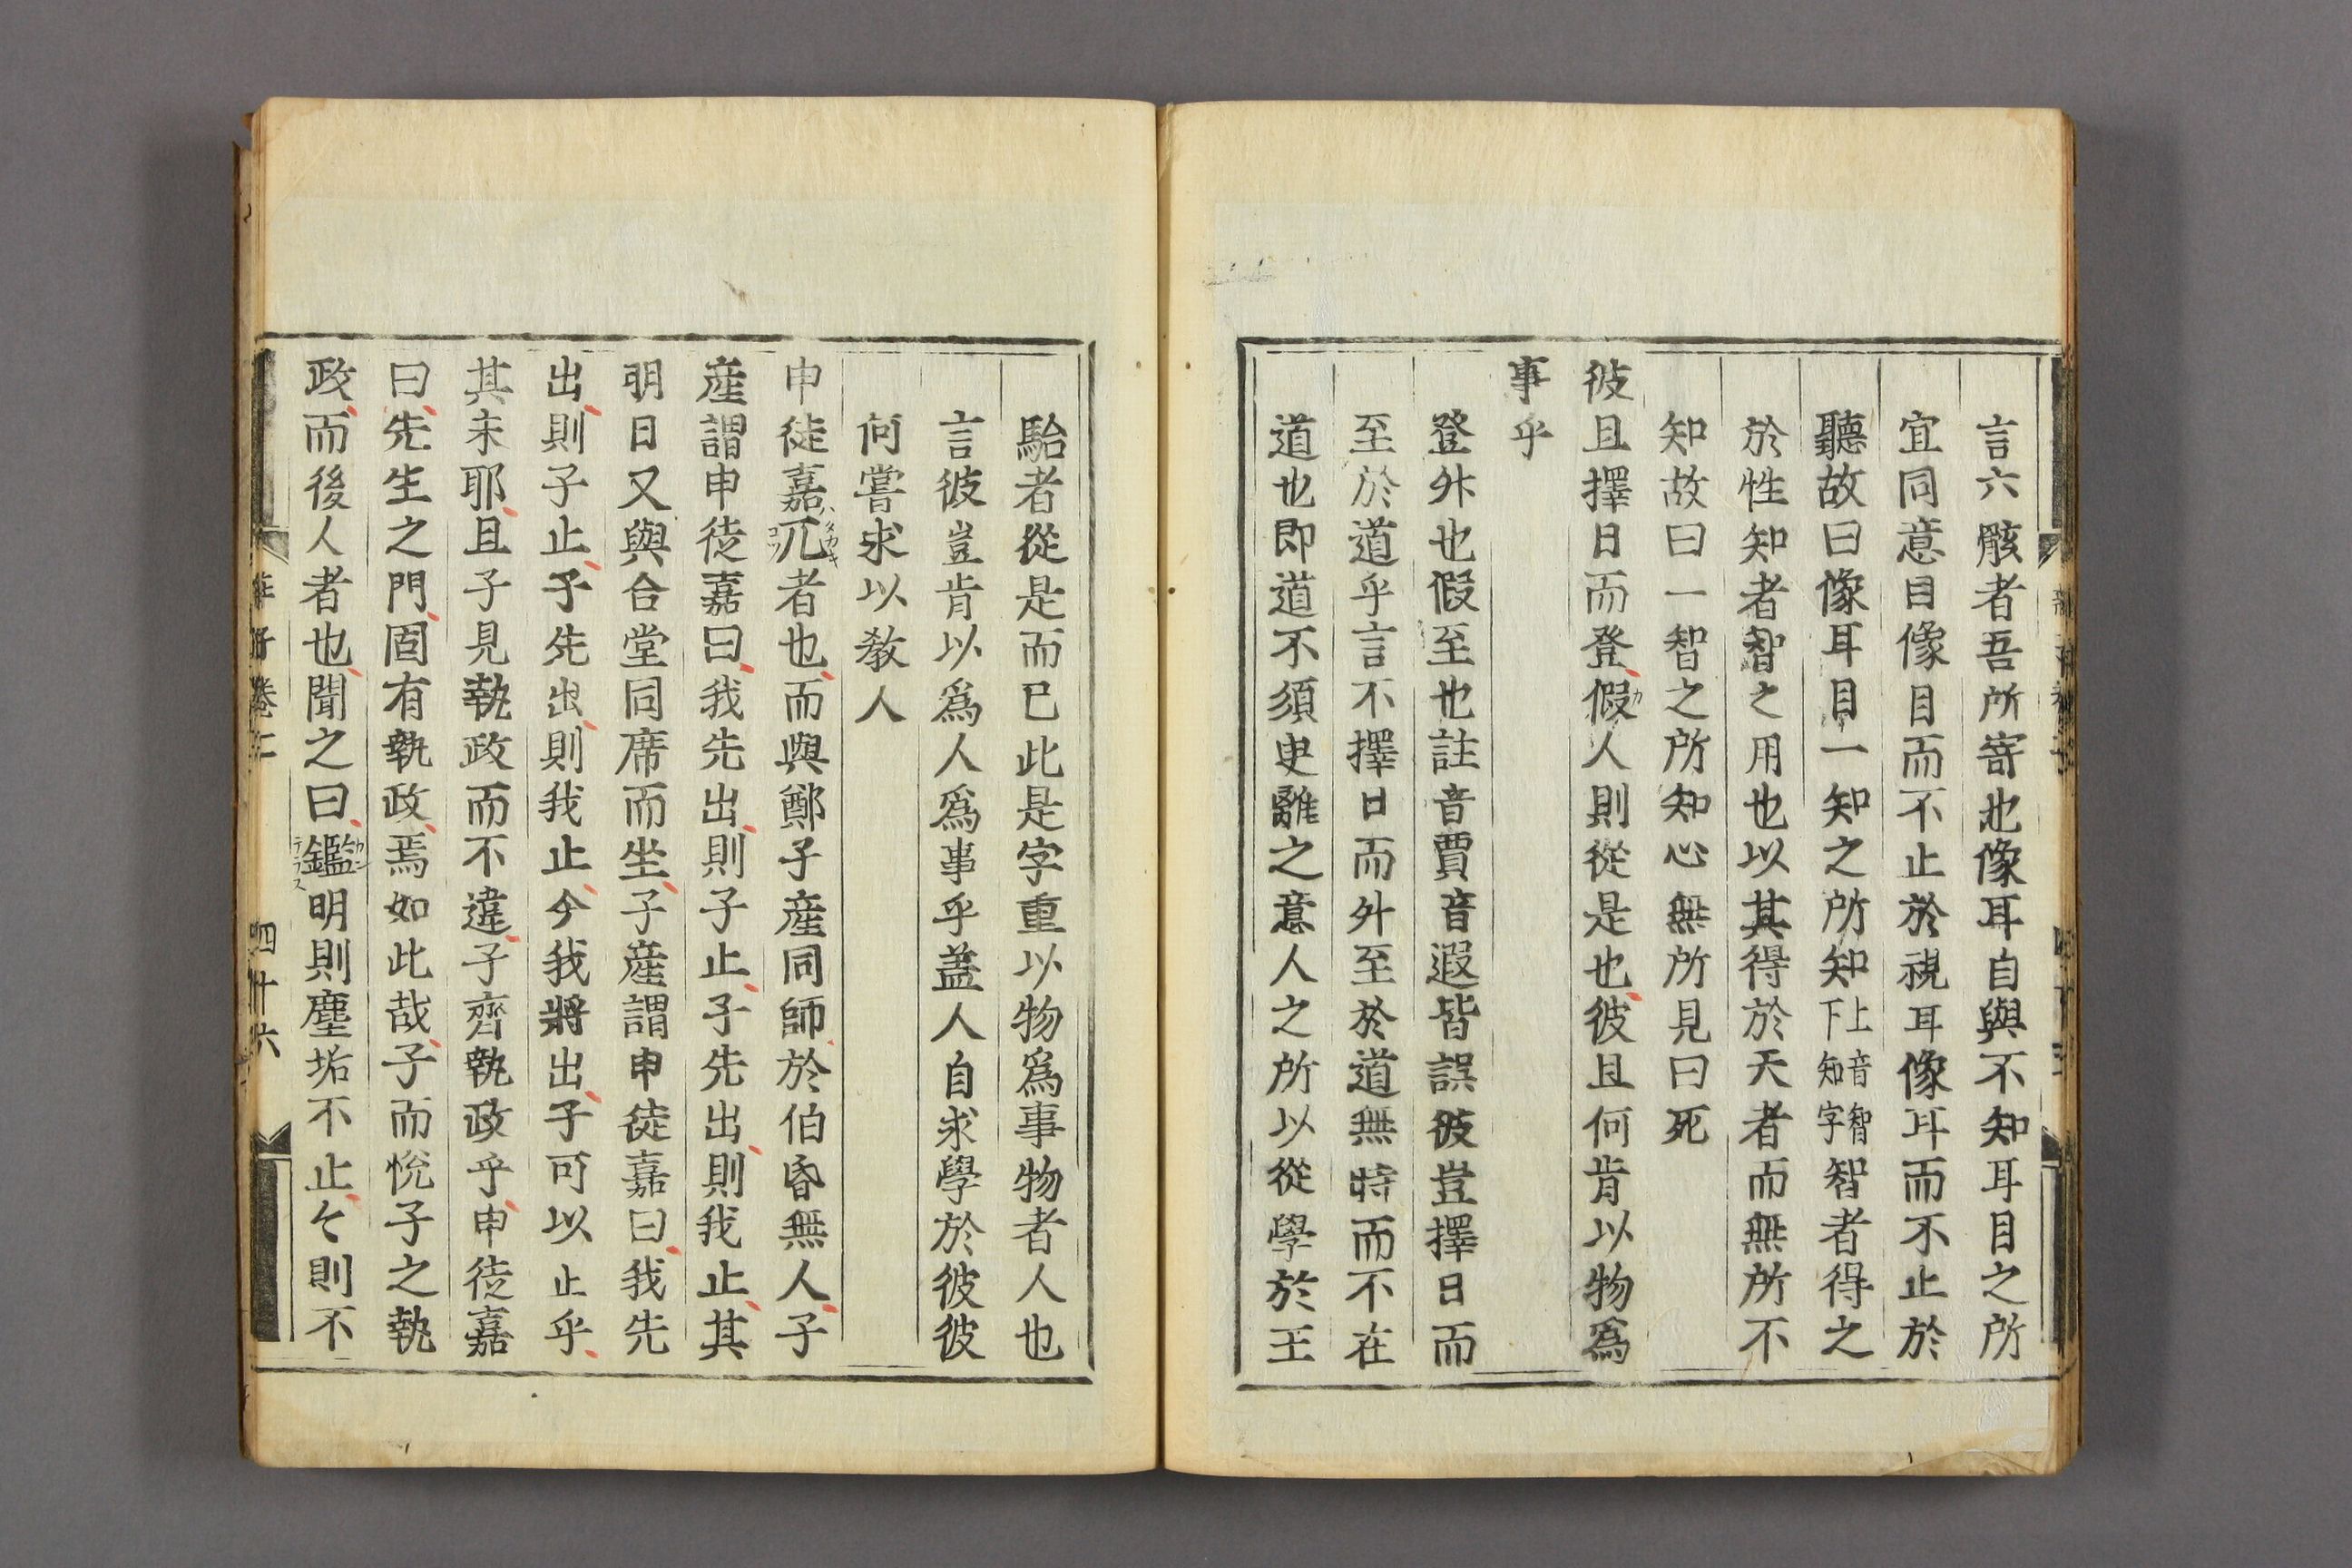 言六骸者吾所寄也像耳自與不知耳目之所
宜同意目像目而不止於視耳像耳而不止於
聽故曰像耳目一知之所知上音智下知字智者得之
於性知者智之用也以其得於天者而無所不
知故曰一智之所知心無所見曰死
彼且擇日而登假人則從是也彼且何肯以物爲
事乎
登外也假至也註音賈音遐皆誤彼豈擇日而
至於道乎言不擇日而外至於道無時而不在
道也即道不須臾離之意人之所以從學於王
駘者從是而已此是字重以物爲事物者人也
言彼豈肯以爲人爲事乎蓋人自求學於彼彼
何嘗求以教人
申徒嘉兀者也而與鄭子產同師於伯昏無人子
產謂申徒嘉曰我先出則子止子先出則我止其
明日又與合堂同席而坐子產謂申徒嘉曰我先
出則子止子先出則我止今我將出子可以止乎
其未耶且子見執政而不違子齊執政乎申徒嘉
曰先生之門固有執政焉如此哉子而悅子之執
政而後人者也聞之曰鑑明則塵垢不止々則不
卷二 四十六